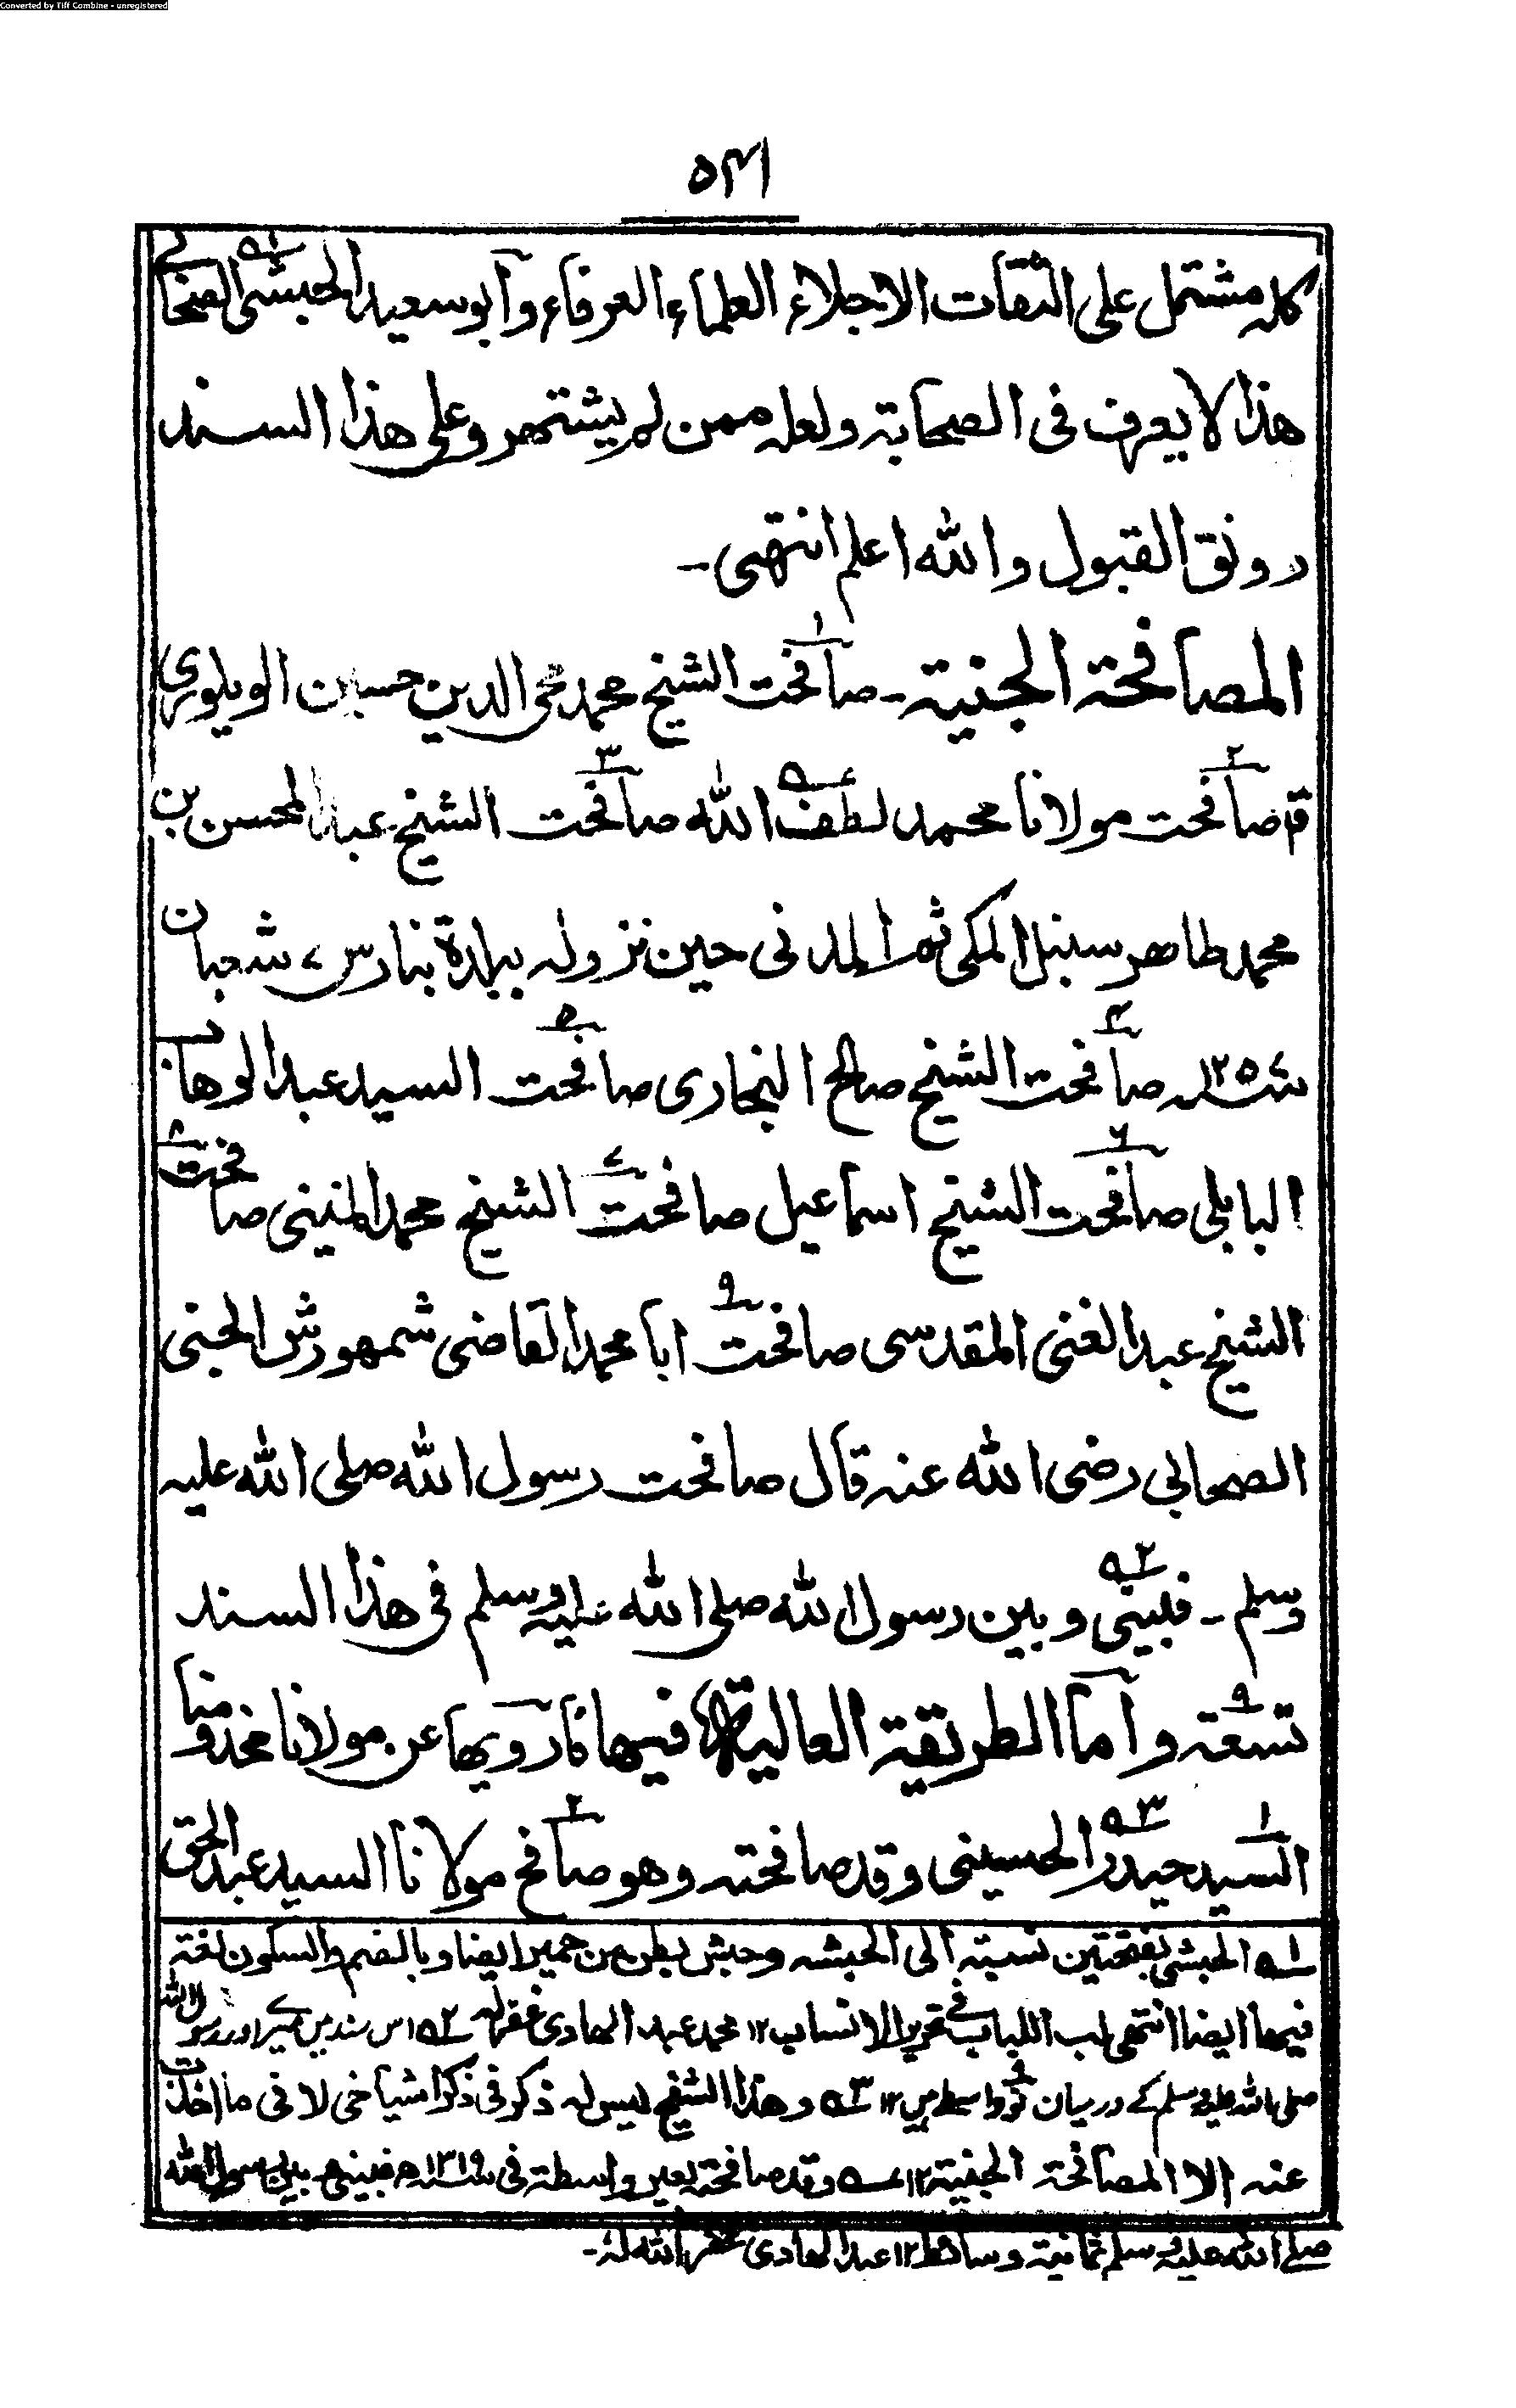 Converted by Tiff Combine - unregistered
۵۴۱
کله مشتمل علی الثقات الاجلاء العلماء العرفاء وآبو سعید الحبشی الصحابی
هذا لا یعرف فی الصحابة ولعله ممن لم یشتهر وعلی هذا السند
رونق القبول والله اعلم انتهی۔
المصافحة الجنیة۔ صافحت الشیخ محمد محی الدین حسین الویلوری
قم صافحت مولانا محمد لطف الله صافحت الشیخ عبد المحسن بن
محمد طاهر سنبل المکی ثم المدنی حین نزوله ببلدة بنارس ۷ شعبان
سنہ ۱۲۵۷ صافحت الشیخ صالح البخاری صافحت السید عبد الوهاب
البابلی صافحت الشیخ اسماعیل صافحت الشیخ محمد المنینی صافحت
الشیخ عبد الغنی المقدسی صافحت ابا محمد القاضی شمهورش الجنی
الصحابی رضی الله عنه قال صافحت رسول الله صلی الله علیه
وسلم۔ فبینی وبین رسول الله صلی الله علیه وسلم فی هذا السند
تسعة وآما الطریقة العالیة فیها فارویها عن مولانا مخدومنا
السید حیدر الحسینی وقد صافحته وهو صافح مولانا السید عبد الحق
۱ه الحبشی بفتحتین نسبة الی الحبشه وحبش بطن من حمیر ایضا وبالضم والسکون لغة
فیها ایضا انتهی لب اللباب فی تحریر الانساب ۱۲ محمد عبد الهادی غفر له ۲ه اس سند میں میرے اور رسول الله
صلی الله علیه وسلم کے درمیان نو واسطے ہیں ۱۲ ۳ه وهذا الشیخ لیس له ذکر فی ذکر اشیاخی لا فی ما اخذت
عنه الا المصافحة الجنیة ۱۲ ۴ه وقد صافحته بغیر واسطة فی سنہ ۱۳۱۹ه فبینی وبین رسول الله
صلی الله علیه وسلم ثمانیة وسائط ۱۲ عبد الهادی غفر الله له۔